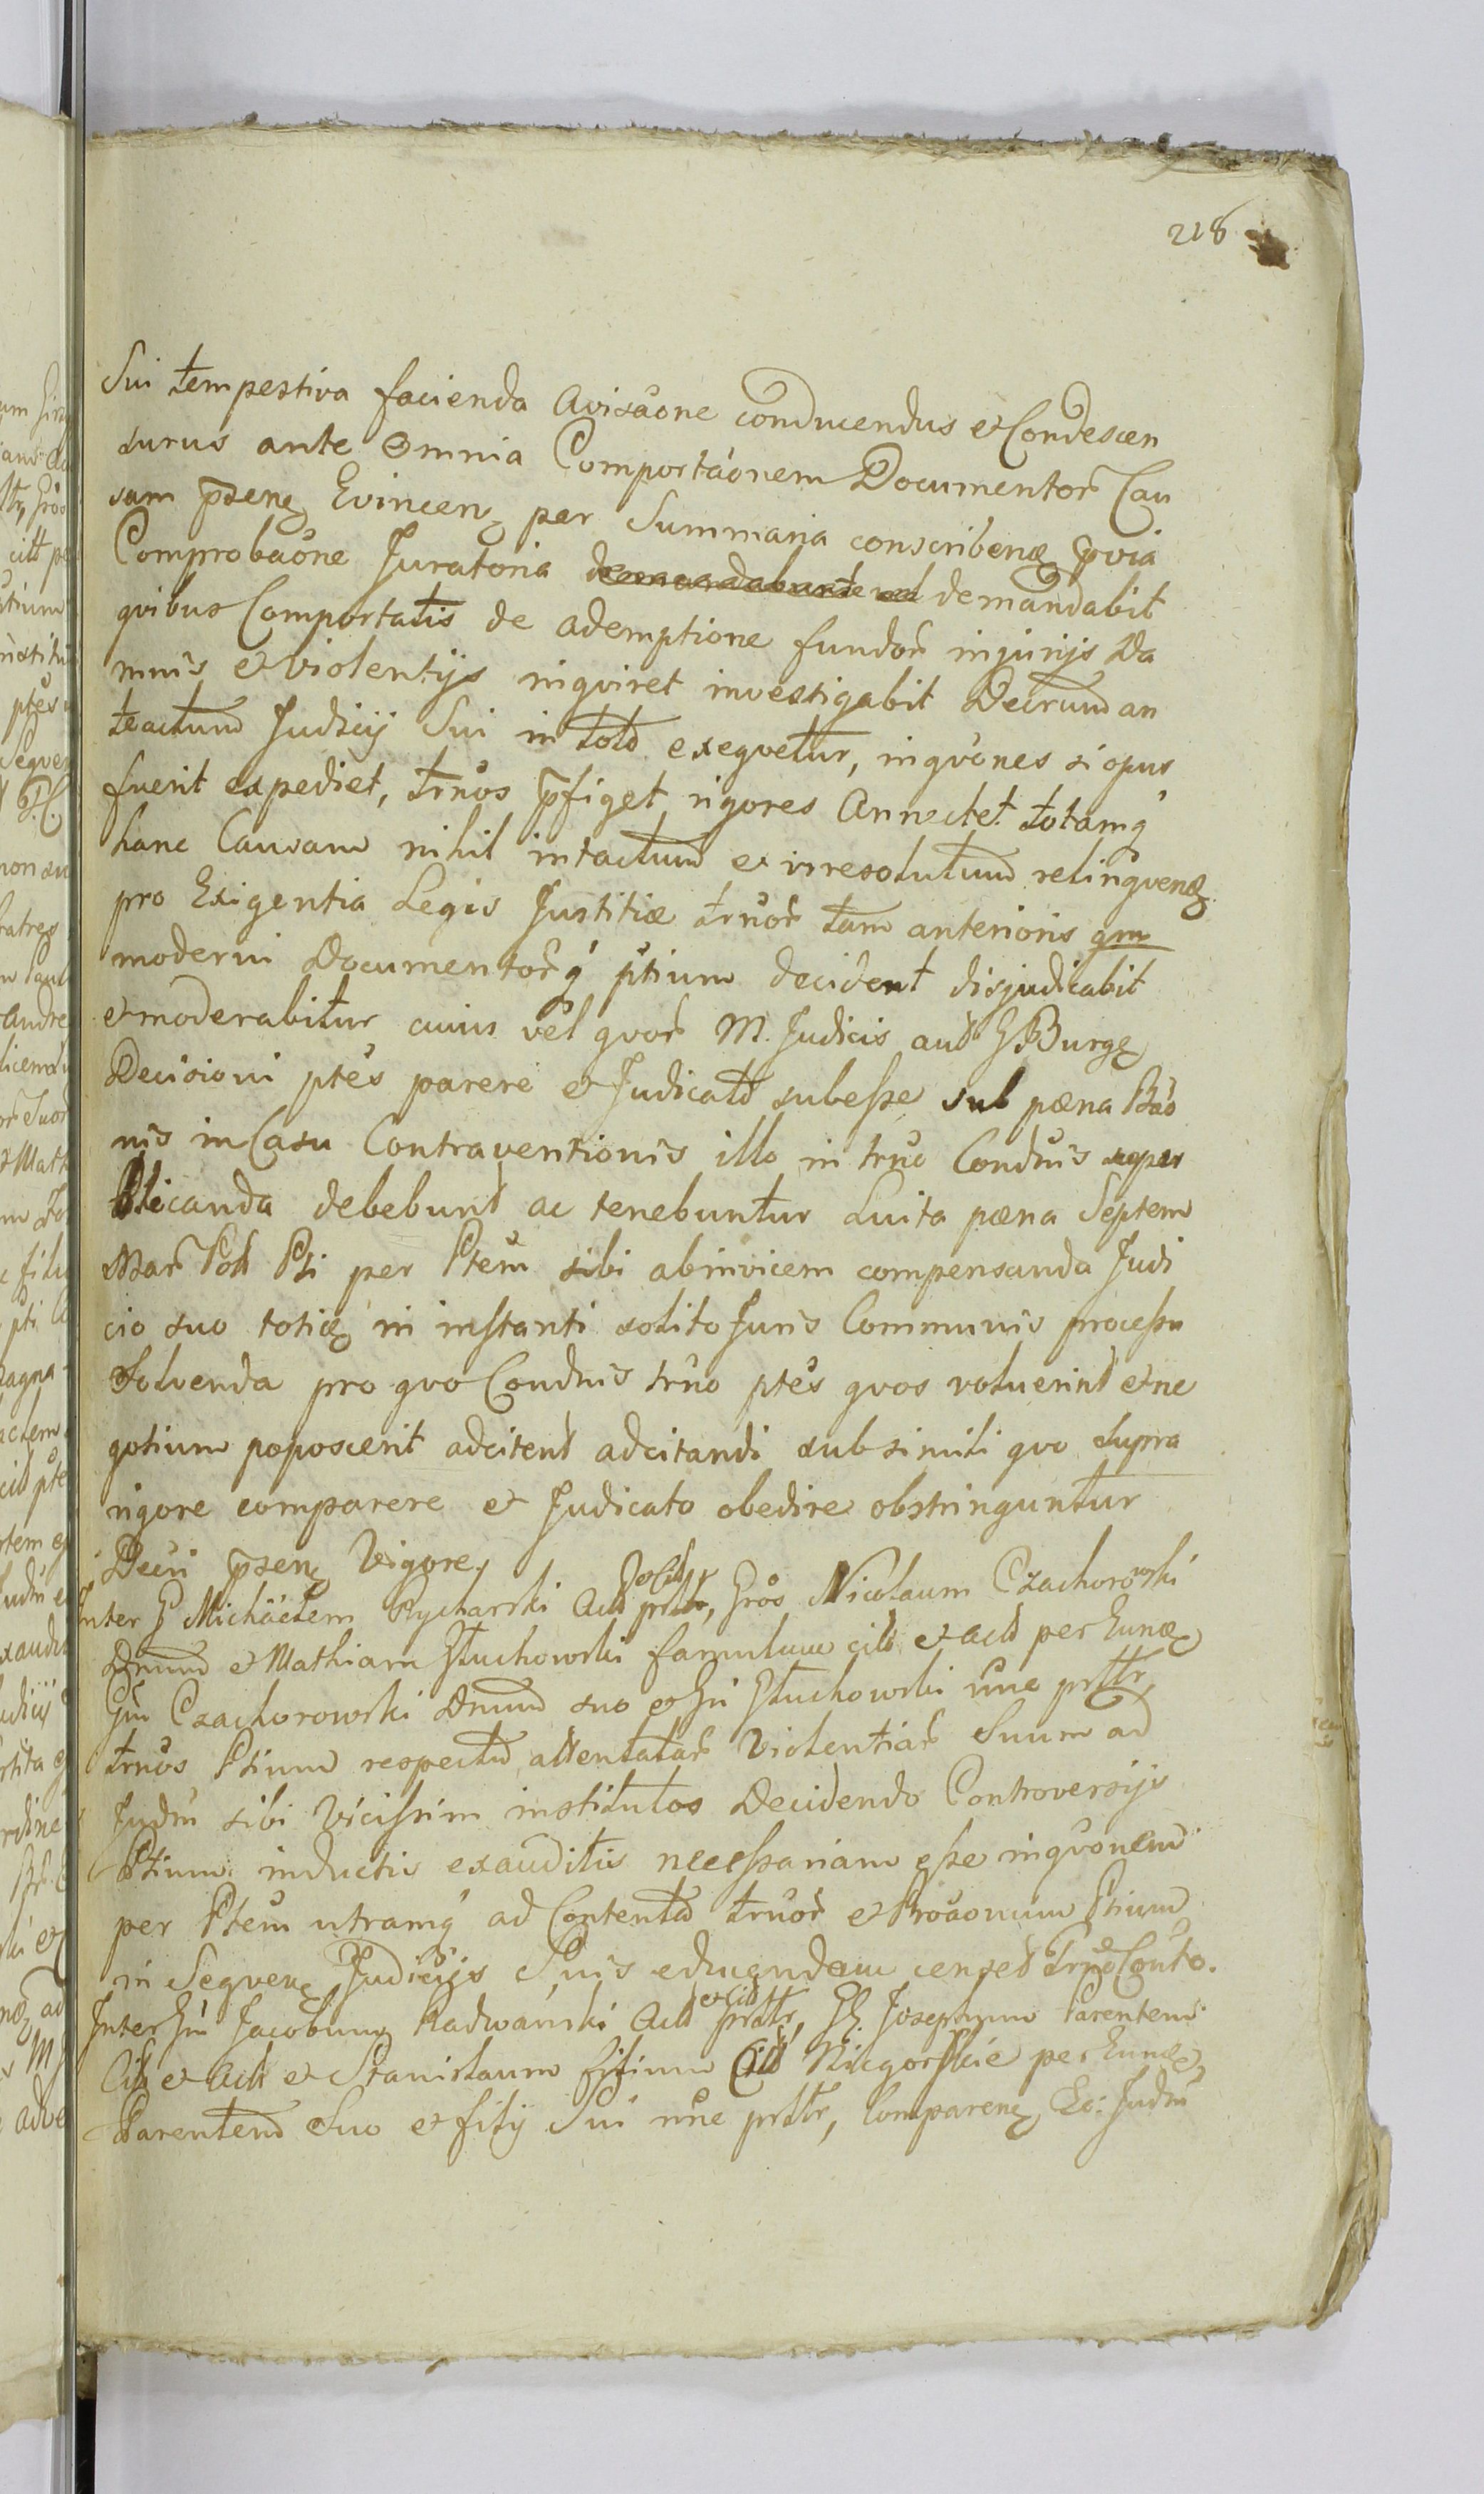 218
Sui tempestiva facienda Avisaone conducendus et Condescen
surus ante omnia Comportaonem Documentor Cau
sam psen Evincen per Summaria conscriben pvia
Comprobaone Juratoria demandabit
qvibus Comportatis de ademptione fundor injurijs Da
mnis et violentijs inqviret investigabit Decrum an
teactum Judicij Sui in toto exeqvetur, inqvones si opus
fuerit expediet, trnos pfiget rigores Annectet totamq
hanc Causam nihil intactum et irresolutum relinqven
pro Exigentia Legis Justitiæ trnor tam anterioris qm
moderni Documentorq ptium decident disjudicabit
et moderabitur cuius vel qvor M. Judicis aut G Burg
Decisioni ptes parere et Judicato subesse sub pæna Bao
nis in Casu Contraventionis illo in trno Condnis super
blicanda debebunt ac tenebuntur Luita pæna Septem
Mar Poll Pti per Ptem sibi abinvicem compensanda Judi
cio suo toties in instanti solito Juris Communis processu
Solvenda pro qvo Condnis trno ptes qvos voluerint et ne
gotium poposcerit adcitent adcitandi sub simili qvo supra
rigore comparere et Judicato obedire obstringuntur
Decri psen Vigore.
Inter G Michäelem Rycharski Act et Cit prltr, Gros Nicolaum Czachorowski
Dnum et Mathiam Głuchowski famulum cit et act per Eund
Gm Czachorowski Dnum suo et Gi Głuchowski nne prltr
trnos Ptium respectu attentatar Violentiar Suum ad
Judm sibi Vicissim institutos Decidendo Controversijs
Ptium inductis exauditis necessariam esse inqvonem
per Ptem utramq ad Contenta trnor et Proaonum Ptium
in Seqven Judicijs Suis educendam censet Trno Conto.
Inter Gm Jacobum Radwański Act et Cit prltr, G. Josephum Parentem
Cit et Act et Stanislaum filium Cit Niegorskie per Eund
Parentem Suo et filij Sui nne prltr, Comparen Ex: Judm